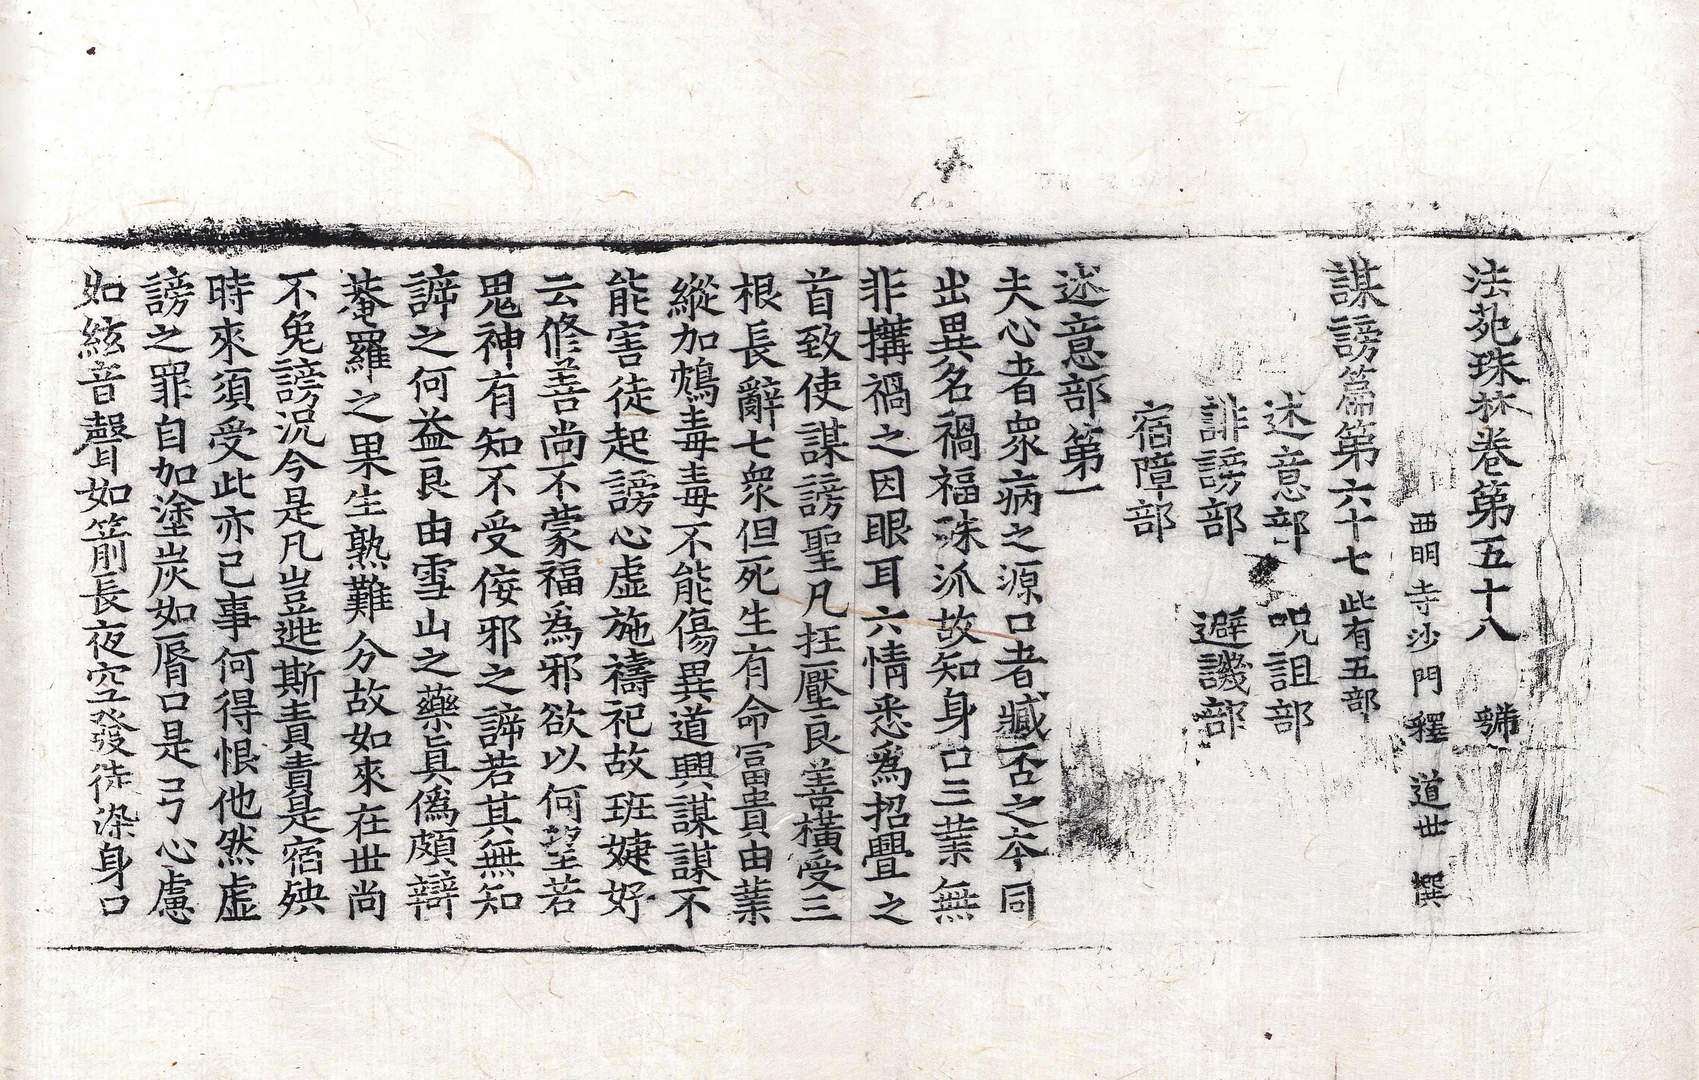 法苑珠林卷第五十八
西明寺沙門釋道世撰
謀謗篇第六十七此有五部
述意部 呪詛部
誹謗部 避譏部
宿障部
述意部第一
夫心者衆病之源口者臧否之夲同
出異名禍福殊派故知身口三業無
非搆禍之因眼耳六情悉爲招疊之
首致使謀謗聖凡抂壓良善橫受三
根長辭七衆但死生有命富貴由業
縱加鴆毒毒不能傷異道興謀謀不
能害徒起謗心虛施禱祀故班婕妤
云修善尚不蒙福爲邪欲以何望若
鬼神有知不受侫邪之諦若其無知
諦之何益良由雪山之藥眞僞頗辯
菴羅之果生熟難分故如來在世尚
不免謗況今是凡豈逃斯責責是宿殃
時來須受此亦己事何得恨他然虛
謗之罪自加塗炭如脣口是弓心慮
如絃音聲如箭長夜空發徒染身口